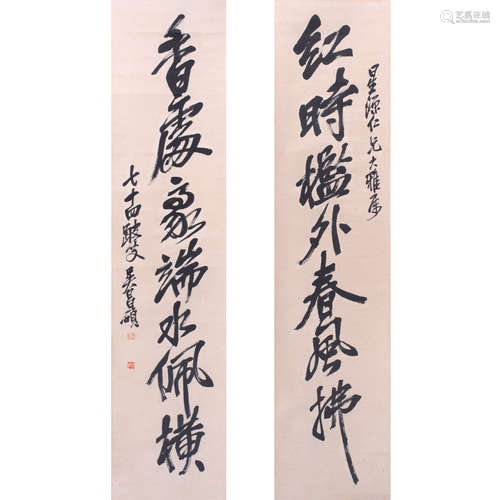 紅時檻外春風拂
星源仁兄大雅屬
香處豪端水佩橫
七十四跛叟吳昌碩